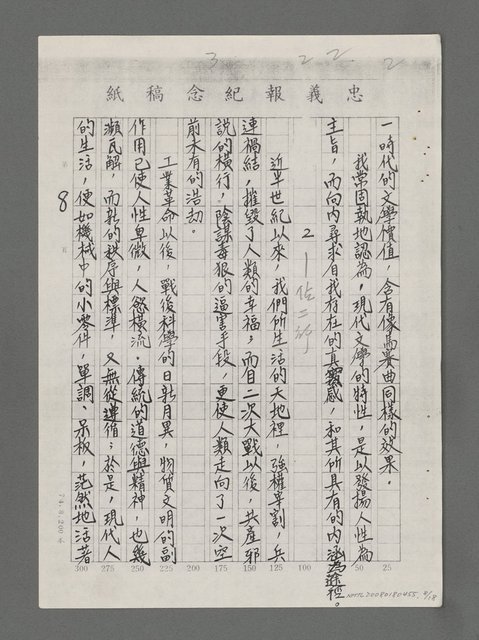 3 2 2 2
忠義報紀念稿紙
一時代的文學價值，含有像馬賽曲同樣的效果。
我常固執地認為，現代文學的特性，是以發揚人性為
主旨，而向內尋求自我存在的真實感，和其所具有的內涵為途徑。
2—佔二行
近半世紀以來，我們所生活的天地裡，強權宰割，兵
連禍結，摧毀了人類的幸福；而自二次大戰以後，共產邪
說的橫行，陰謀毒狠的逼害手段，更使人類走向了一次空
前未有的浩劫。
工業革命以後，戰後科學的日新月異，物質文明的副
作用已使人性卑微，人慾橫流。傳統的道德與精神，也幾
瀕瓦解，而新的秩序與標準，又無從遵循；於是，現代人
的生活，便如機械中的小零件，單調、呆板，茫然地活著
第 8 頁
300 275 250 225 200 175 150 125 100 75 50 25
74.8.200本
NMTL20080180455 8/18